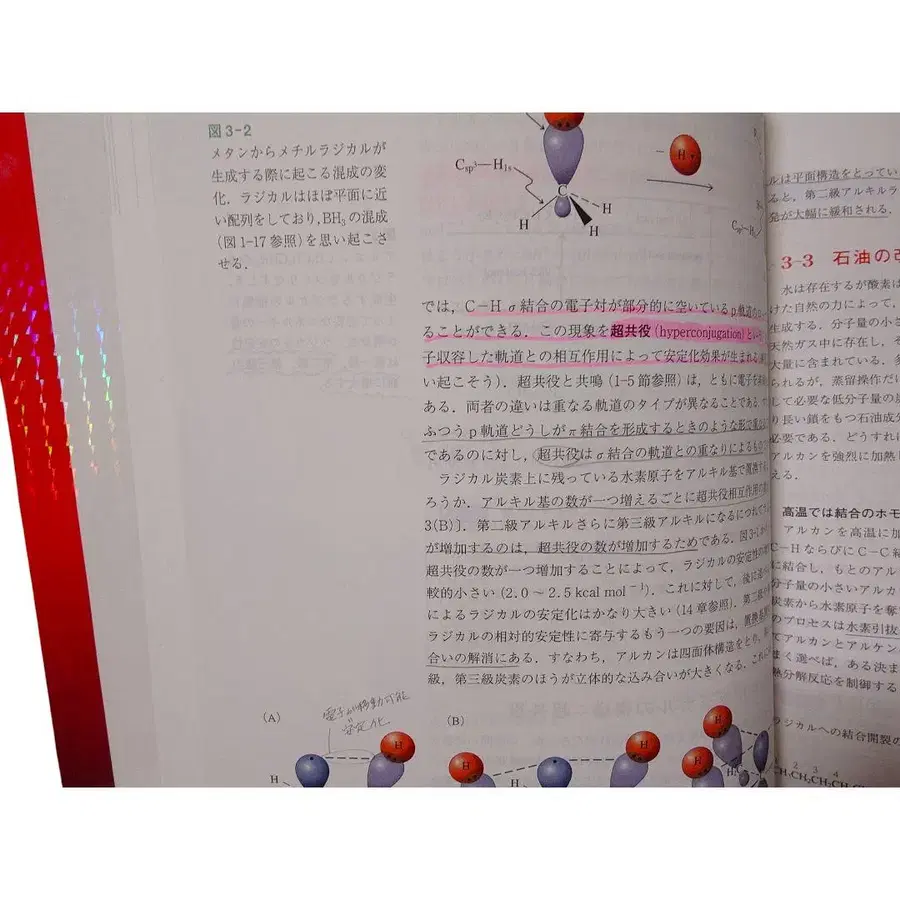 図3-2
メタンからメチルラジカルが
生成する際に起こる混成の変
化．ラジカルはほぼ平面に近
い配列をしており，BH₃の混成
(図1-17参照)を思い起こさ
せる．
Csp³—H1s
C
H
H
H
− H•
では，C−H σ結合の電子対が部分的に空いているp軌道の
ることができる．この現象を超共役(hyperconjugation)とい
子収容した軌道との相互作用によって安定化効果が生まれる
い起こそう)．超共役と共鳴(1-5節参照)は，ともに電子を
ある．両者の違いは重なる軌道のタイプが異なることである．
ふつうp軌道どうしがπ結合を形成するときのような形で
であるのに対し，超共役はσ結合の軌道との重なりによるもの
ラジカル炭素上に残っている水素原子をアルキル基で置換
ろうか．アルキル基の数が一つ増えるごとに超共役相互作用の
3(B)]．第二級アルキルさらに第三級アルキルになるにつれて
が増加するのは，超共役の数が増加するためである．図3-1
超共役の数が一つ増加することによって，ラジカルの安定性の
較的小さい(2.0〜2.5 kcal mol⁻¹)．これに対して，後に述べ
によるラジカルの安定化はかなり大きい(14章参照)．第三
ラジカルの相対的安定性に寄与するもう一つの要因は，置換基
合いの解消にある．すなわち，アルカンは四面体構造をとり，
級，第三級炭素のほうが立体的な込み合いが大きくなる．これ
(A)
電子が移動可能
安定化
H
H
(B)
H
H
H
H
H
ルは平面構造をとってい
ると，第二級アルキルラ
発が大幅に緩和される．
3-3 石油の改
水は存在するが酸素は
けた自然の力によって，
生成する．分子量の小さ
天然ガス中に存在し，そ
大量に含まれている．多
られるが，蒸留操作だけ
して必要な低分子量の炭
り長い鎖をもつ石油成分
必要である．どうすれば
アルカンを強烈に加熱し
える．
高温では結合のホモ
アルカンを高温に加
C−HならびにC−C結
に結合し，もとのアルカ
分子量の小さいアルカ
炭素から水素原子を奪
のプロセスは水素引抜
てアルカンとアルケン
まく選べば，ある決ま
熱分解反応を制御する
ラジカルへの結合開裂の
2 3 4
CH₃CH₂CH₂CH₂